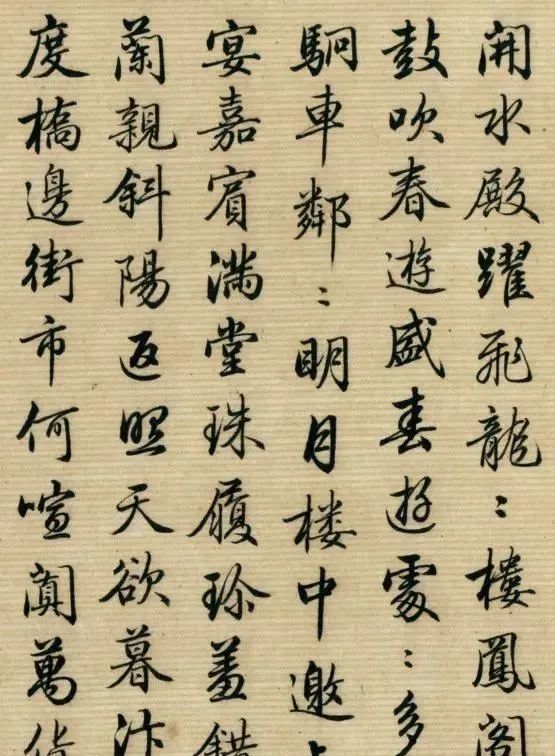 開水殿躍飛龍〻樓鳳閣
鼓吹春遊盛春遊處〻多
駉車鄰〻明月楼中邀
宴嘉賓滿堂珠履珍羞錯
蘭親斜陽返照天欲暮汴
度橋邊街市何喧闐萬貨